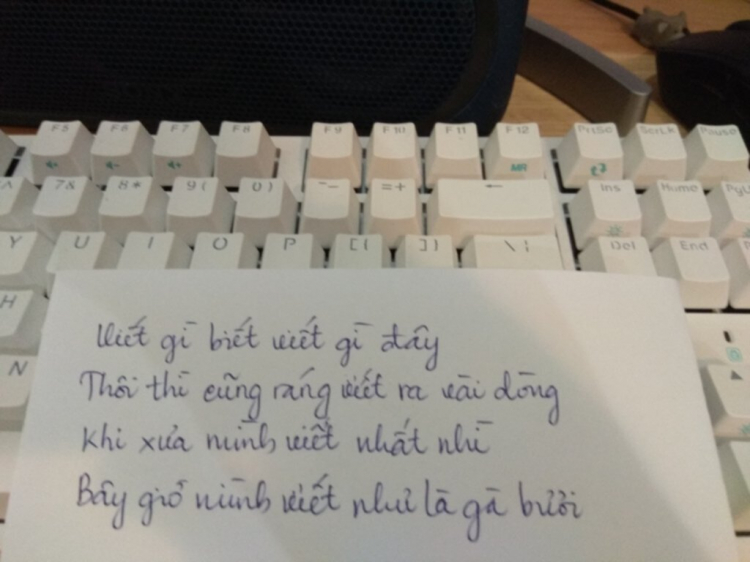 F5 F6 F7 F8 F9 F10 F11 F12 PrtSc ScrLk Pause
7& 8* 9( 0) -_ =+ ← Ins Home
Y U I O P [{ ]} \| Del End
H
N
Viết gì biết viết gì đây
Thôi thì cũng ráng viết ra vài dòng
Khi xưa mình viết nhất nhì
Bây giờ mình viết như là gà bưới